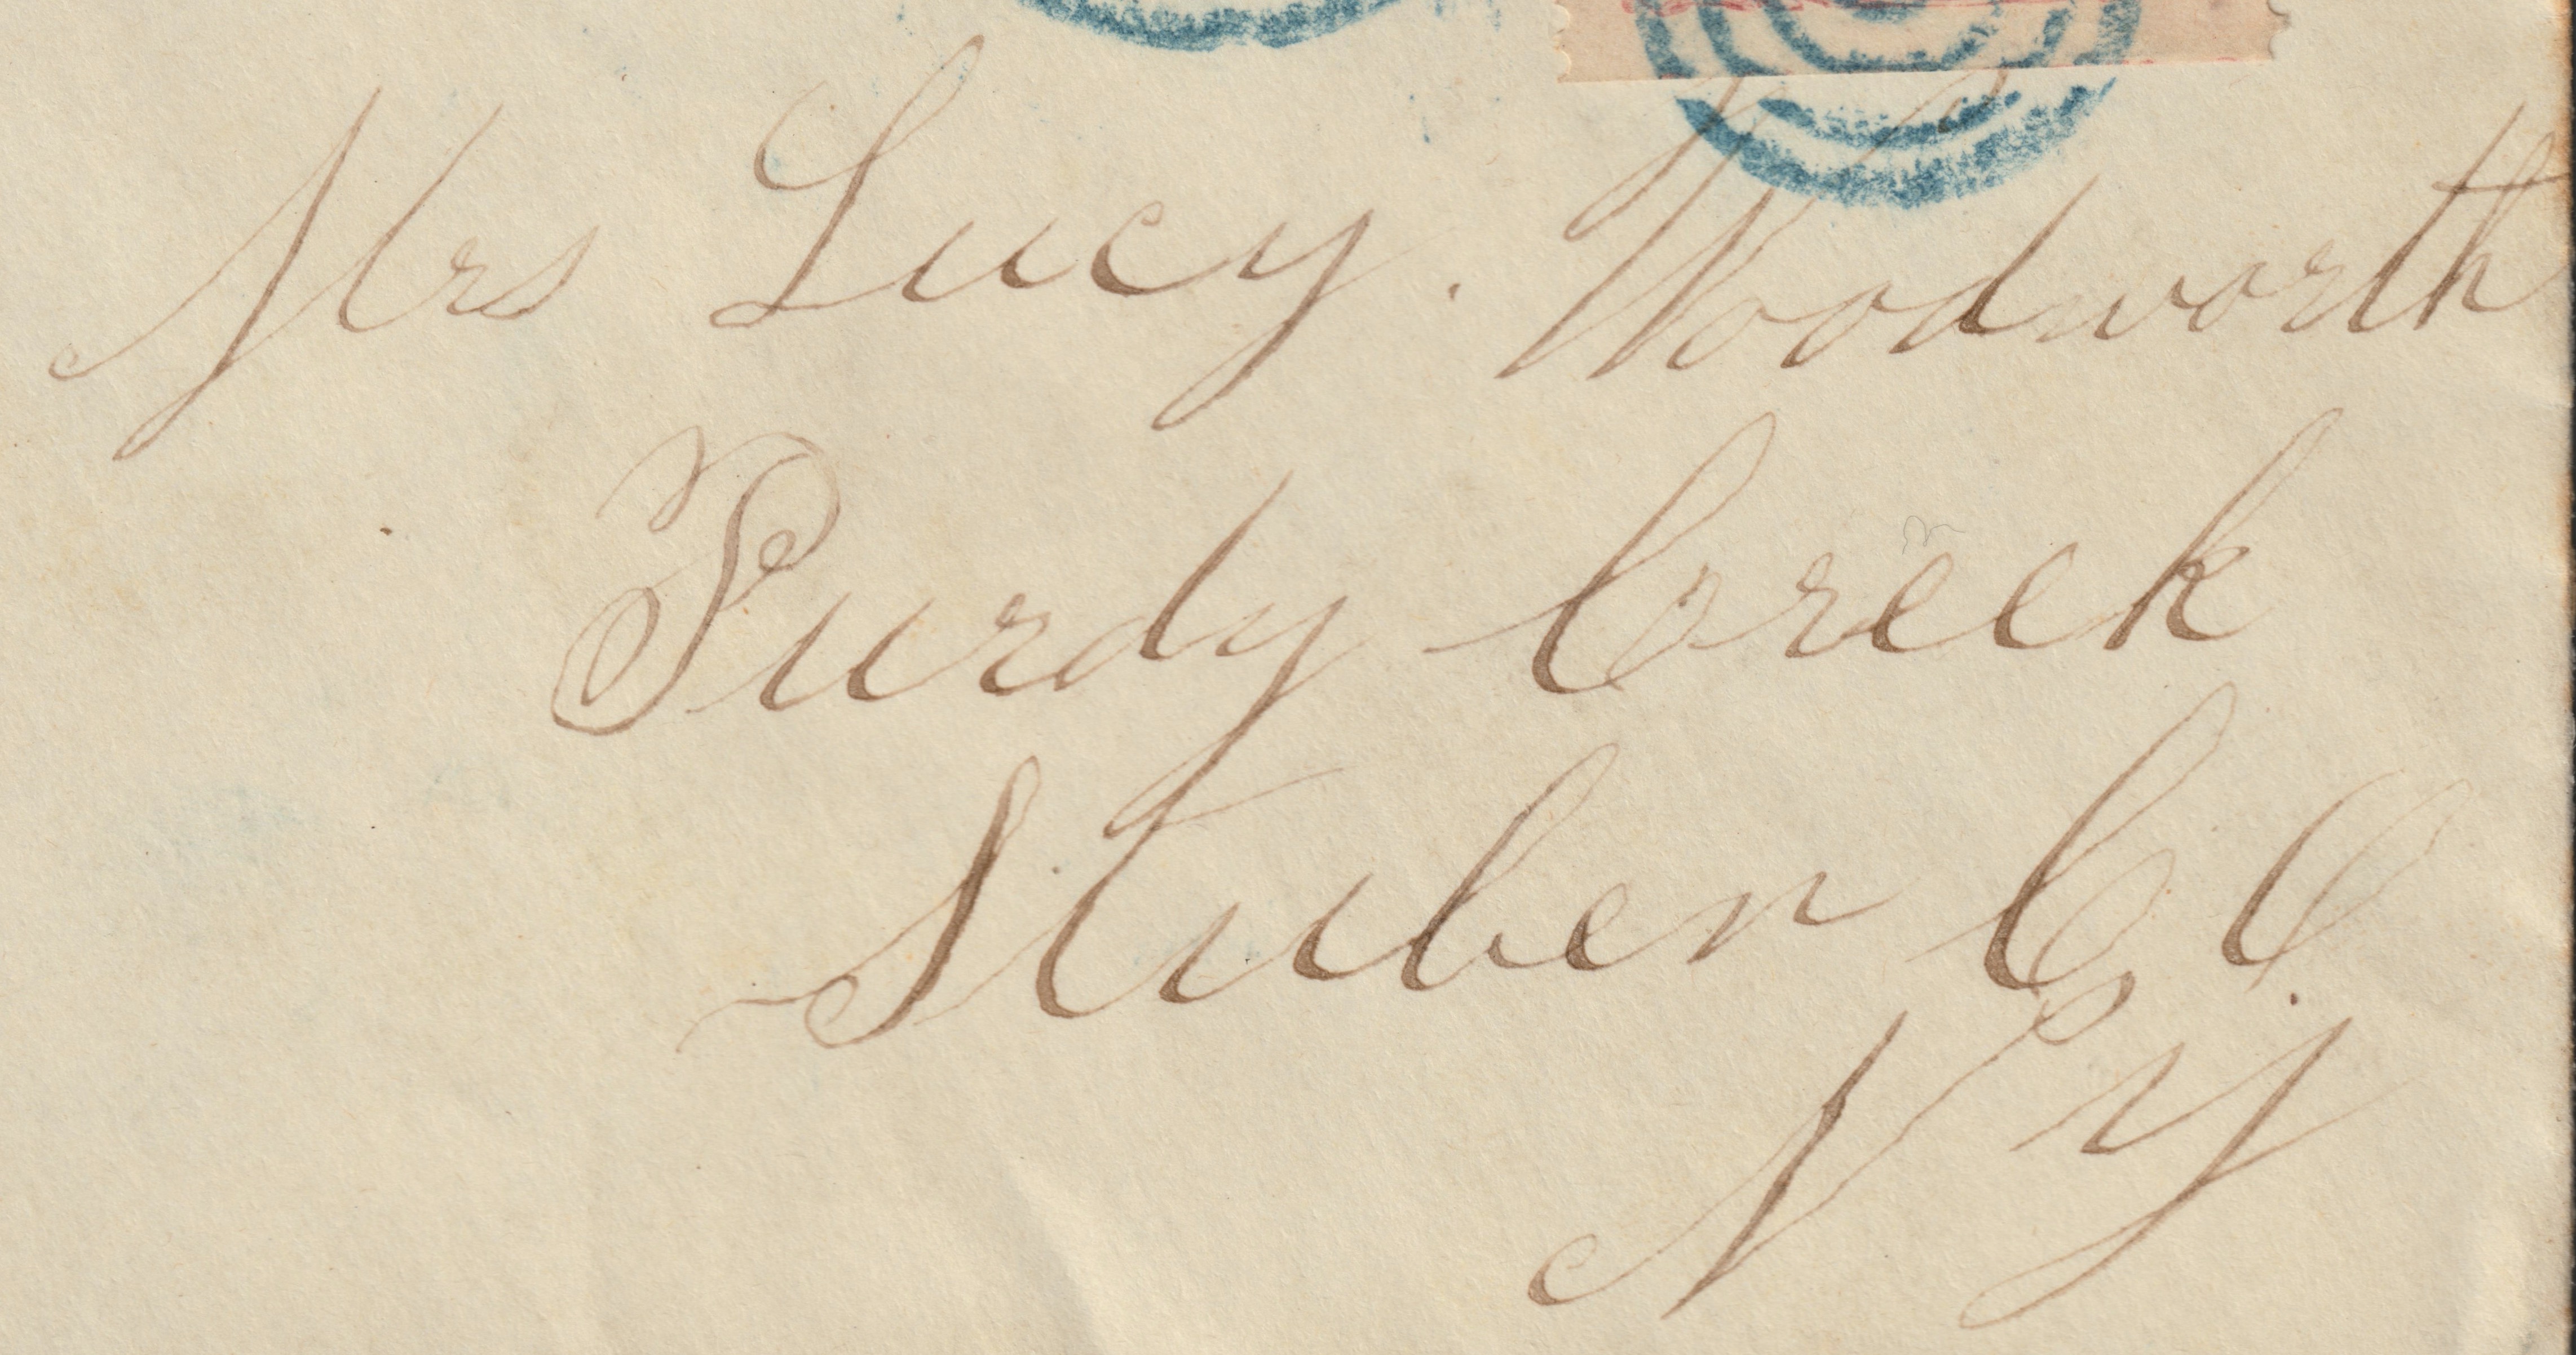 Mrs Lucy. Woodworth
Purdy Creek
Stuben CO.
NY